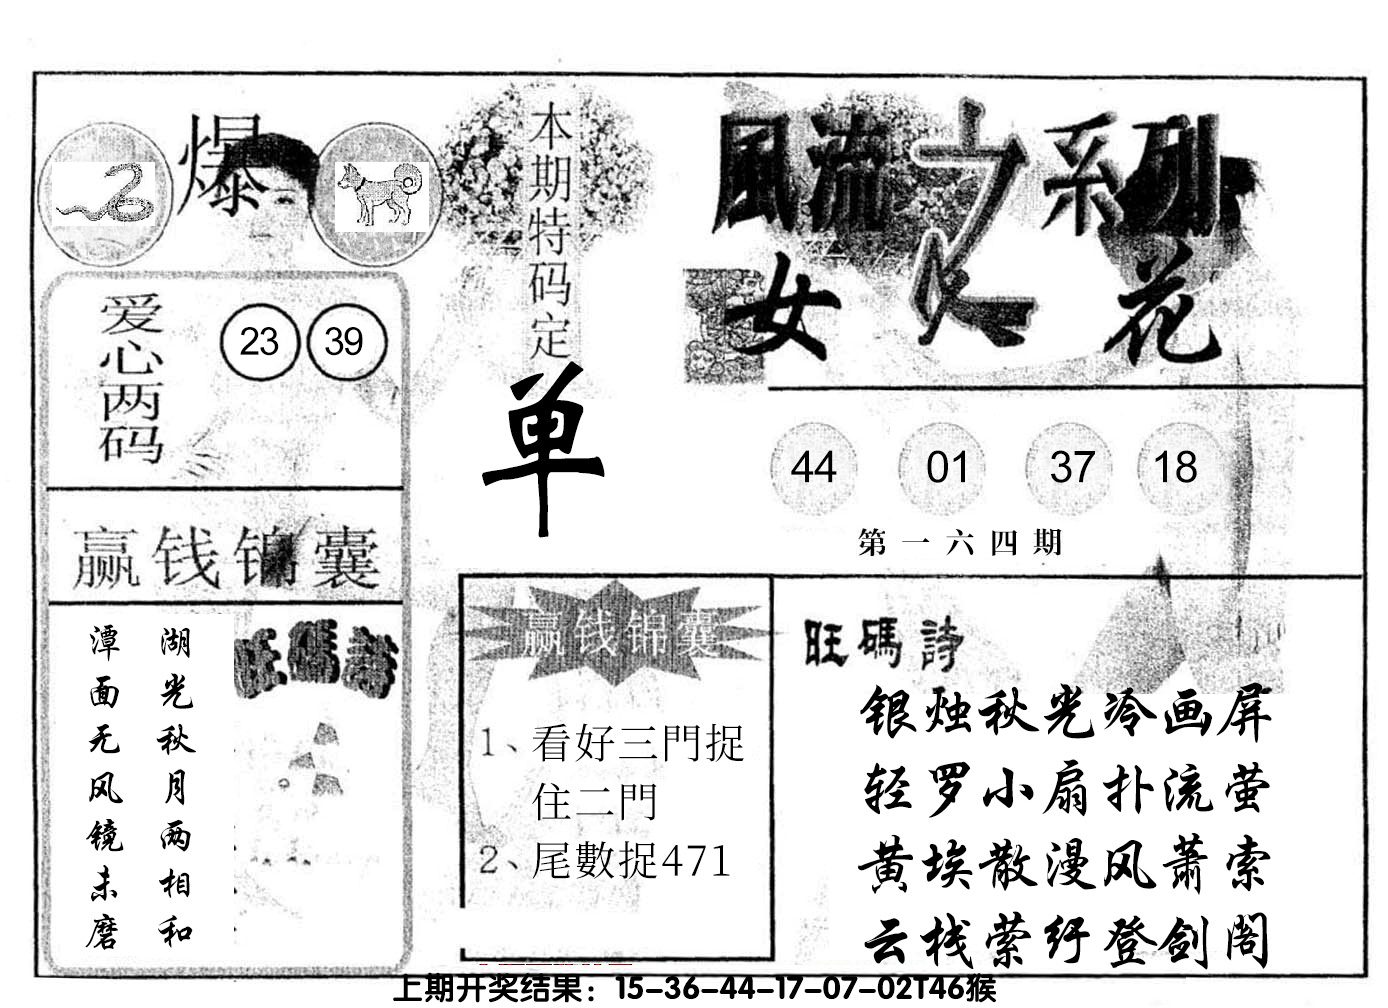 爆
本期特码定
单
風流之系列
女人花
爱心两码
23 39
赢钱锦囊
旺碼詩
湖光秋月两相和
潭面无风镜未磨
44 01 37 18
第一六四期
赢钱锦囊
1、看好三門捉
住二門
2、尾數捉471
旺碼詩
银烛秋光冷画屏
轻罗小扇扑流萤
黄埃散漫风萧索
云栈萦纡登剑阁
上期开奖结果：15-36-44-17-07-02T46猴